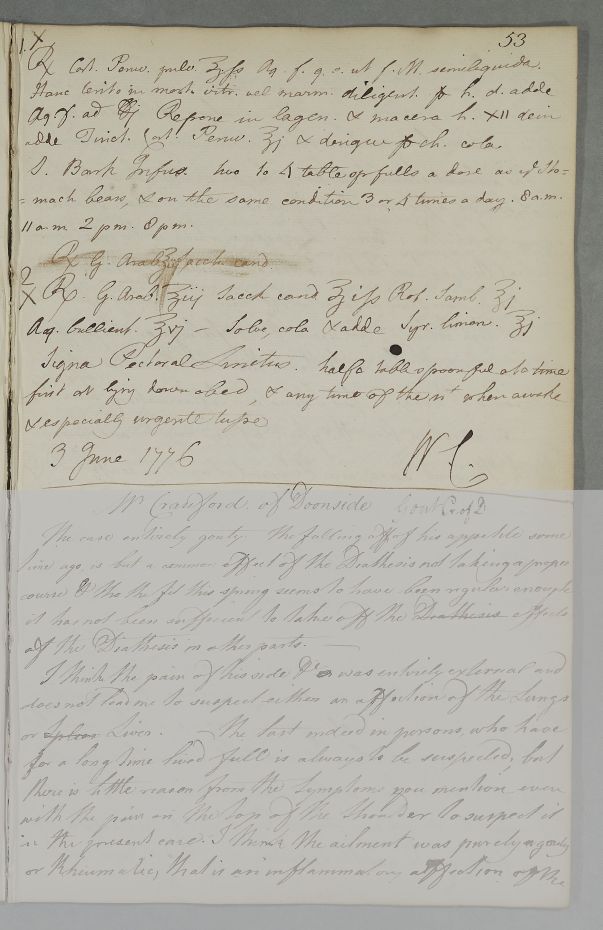 53
1. X
Rx Cort. Peruv. pulv. ℥iſs Aq. f. q. s. ut f. M. semiliquida.
Hanc tento in mort. vitr. vel marm. diligent. p h. d. adde
Aq. f. ad ℔j Repone in lagen. & macera h. XII dein
adde Tinct. Cort. Peruv. ℥j & denique p ch. cola.
S. Bark Infus. two to 4 table spfulls a dose as ye Sto=
=mach bears, & on the same condition 3 or 4 times a day. 8 a.m.
11 a.m. 2 p.m. 8 p.m.
Rx G. Arab. ℥iij Sacch cand.
2
X Rx. G. Arab. ℥iij Sacch cand. ℥iſs Rob. Samb. ℥j
Aq. bullient. ℥vj — Solve, cola & adde Syr. limon. ℥j
Signa Pectoral Linctus. half a table spoonful at a time
first at lying down abed, & any time of the nt when awake
& especially urgente tusse
3 June 1776
W C.
Mr Crawford of Doonside Gout C. of 2
The case entirely gouty. The falling off of his appetite some
time ago, is but a common effect of the Diathesis not taking a proper
course & tho the fit this spring seems to have been regular enough
it has not been sufficient to take off the Diathesis effects
of the Diathesis in other parts. —
I think the pain of his side &c was entirely external and
does not lead me to suspect either an affection of the Lungs
or Spleen Liver. The last indeed in persons, who have
for a long time lived full is always to be suspected, but
there is little reason from the symptoms you mention even
with the pain on the top of the shoulder to suspect it
in the present case. I think the ailment was purely gouty
or Rheumatic, that is an inflammatory affection of the